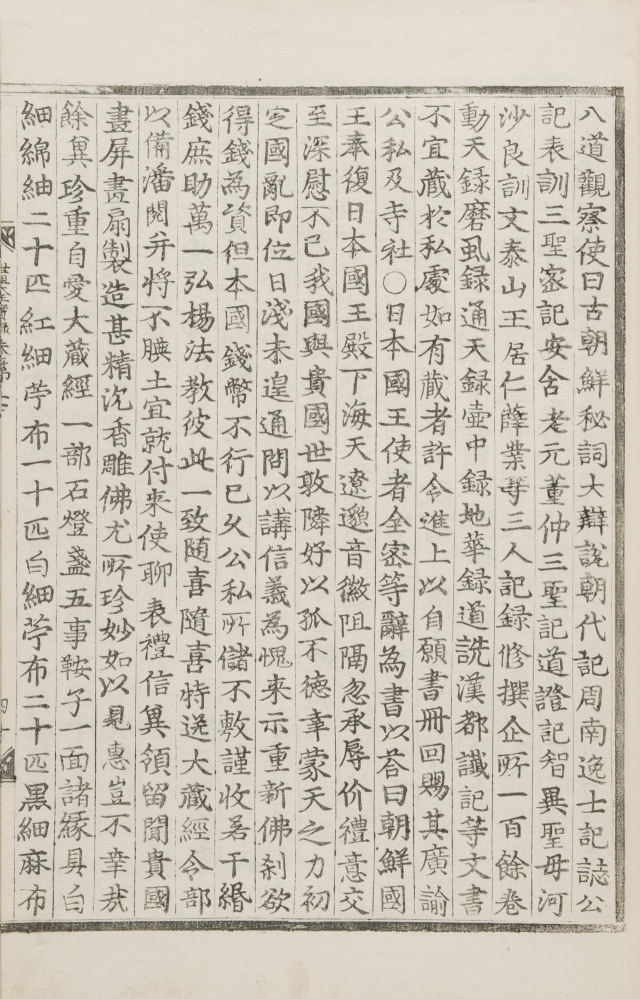 八道觀察使曰古朝鮮秘詞大辯說朝代記周南逸士記誌公
記表訓三聖密記安含老元董仲三聖記道證記智異聖母河
沙良訓文泰山王居仁薛業等三人記録修撰企所一百餘卷
動天録磨虱録通天録壺中録地華録道詵漢都讖記等文書
不宜藏於私處如有藏者許令進上以自願書冊回賜其廣諭
公私及寺社○日本國王使者全密等辭為書以荅曰朝鮮國
王奉復日本國王殿下海天遼邈音徽阻隔忽承辱价禮意交
至深慰不已我國與貴國世敦隣好以孤不德幸蒙天之力初
定國亂即位日淺未遑通問以講信義為愧来示重新佛刹欲
得錢為資但本國錢幣不行已久公私所儲不敷謹收若干緡
錢庶助萬一弘揚法教彼此一致随喜隨喜特送大藏經令部
以備潘閱并將不腆土宜就付来使聊表禮信兾領留聞貴國
畫屏畫扇製造甚精沈香雕佛尤所珍妙如以見惠豈不幸㢤
餘兾珍重自愛大藏經一部石燈盞五事鞍子一面諸緣具白
細綿紬二十匹紅細苧布一十匹白細苧布二十匹黑細麻布